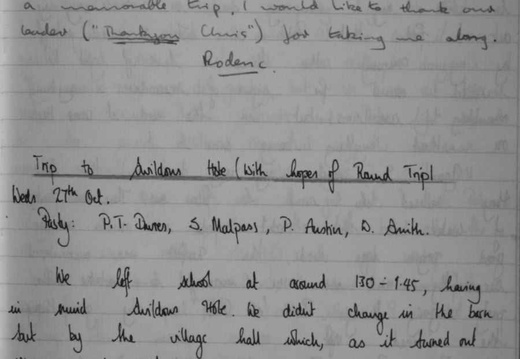 a memorable trip. I would like to thank our
leader ("Thankyou Chris") for taking me along.
Roderic.
Trip to Swildons Hole (With hopes of Round Trip)
Weds 27th Oct.
Party: P.T. Davies, S. Malpass, P. Austin, D. Smith.
We left school at around 130 - 1.45, having
in mind Swildons Hole. We didn't change in the barn
but by the village hall which, as it turned out